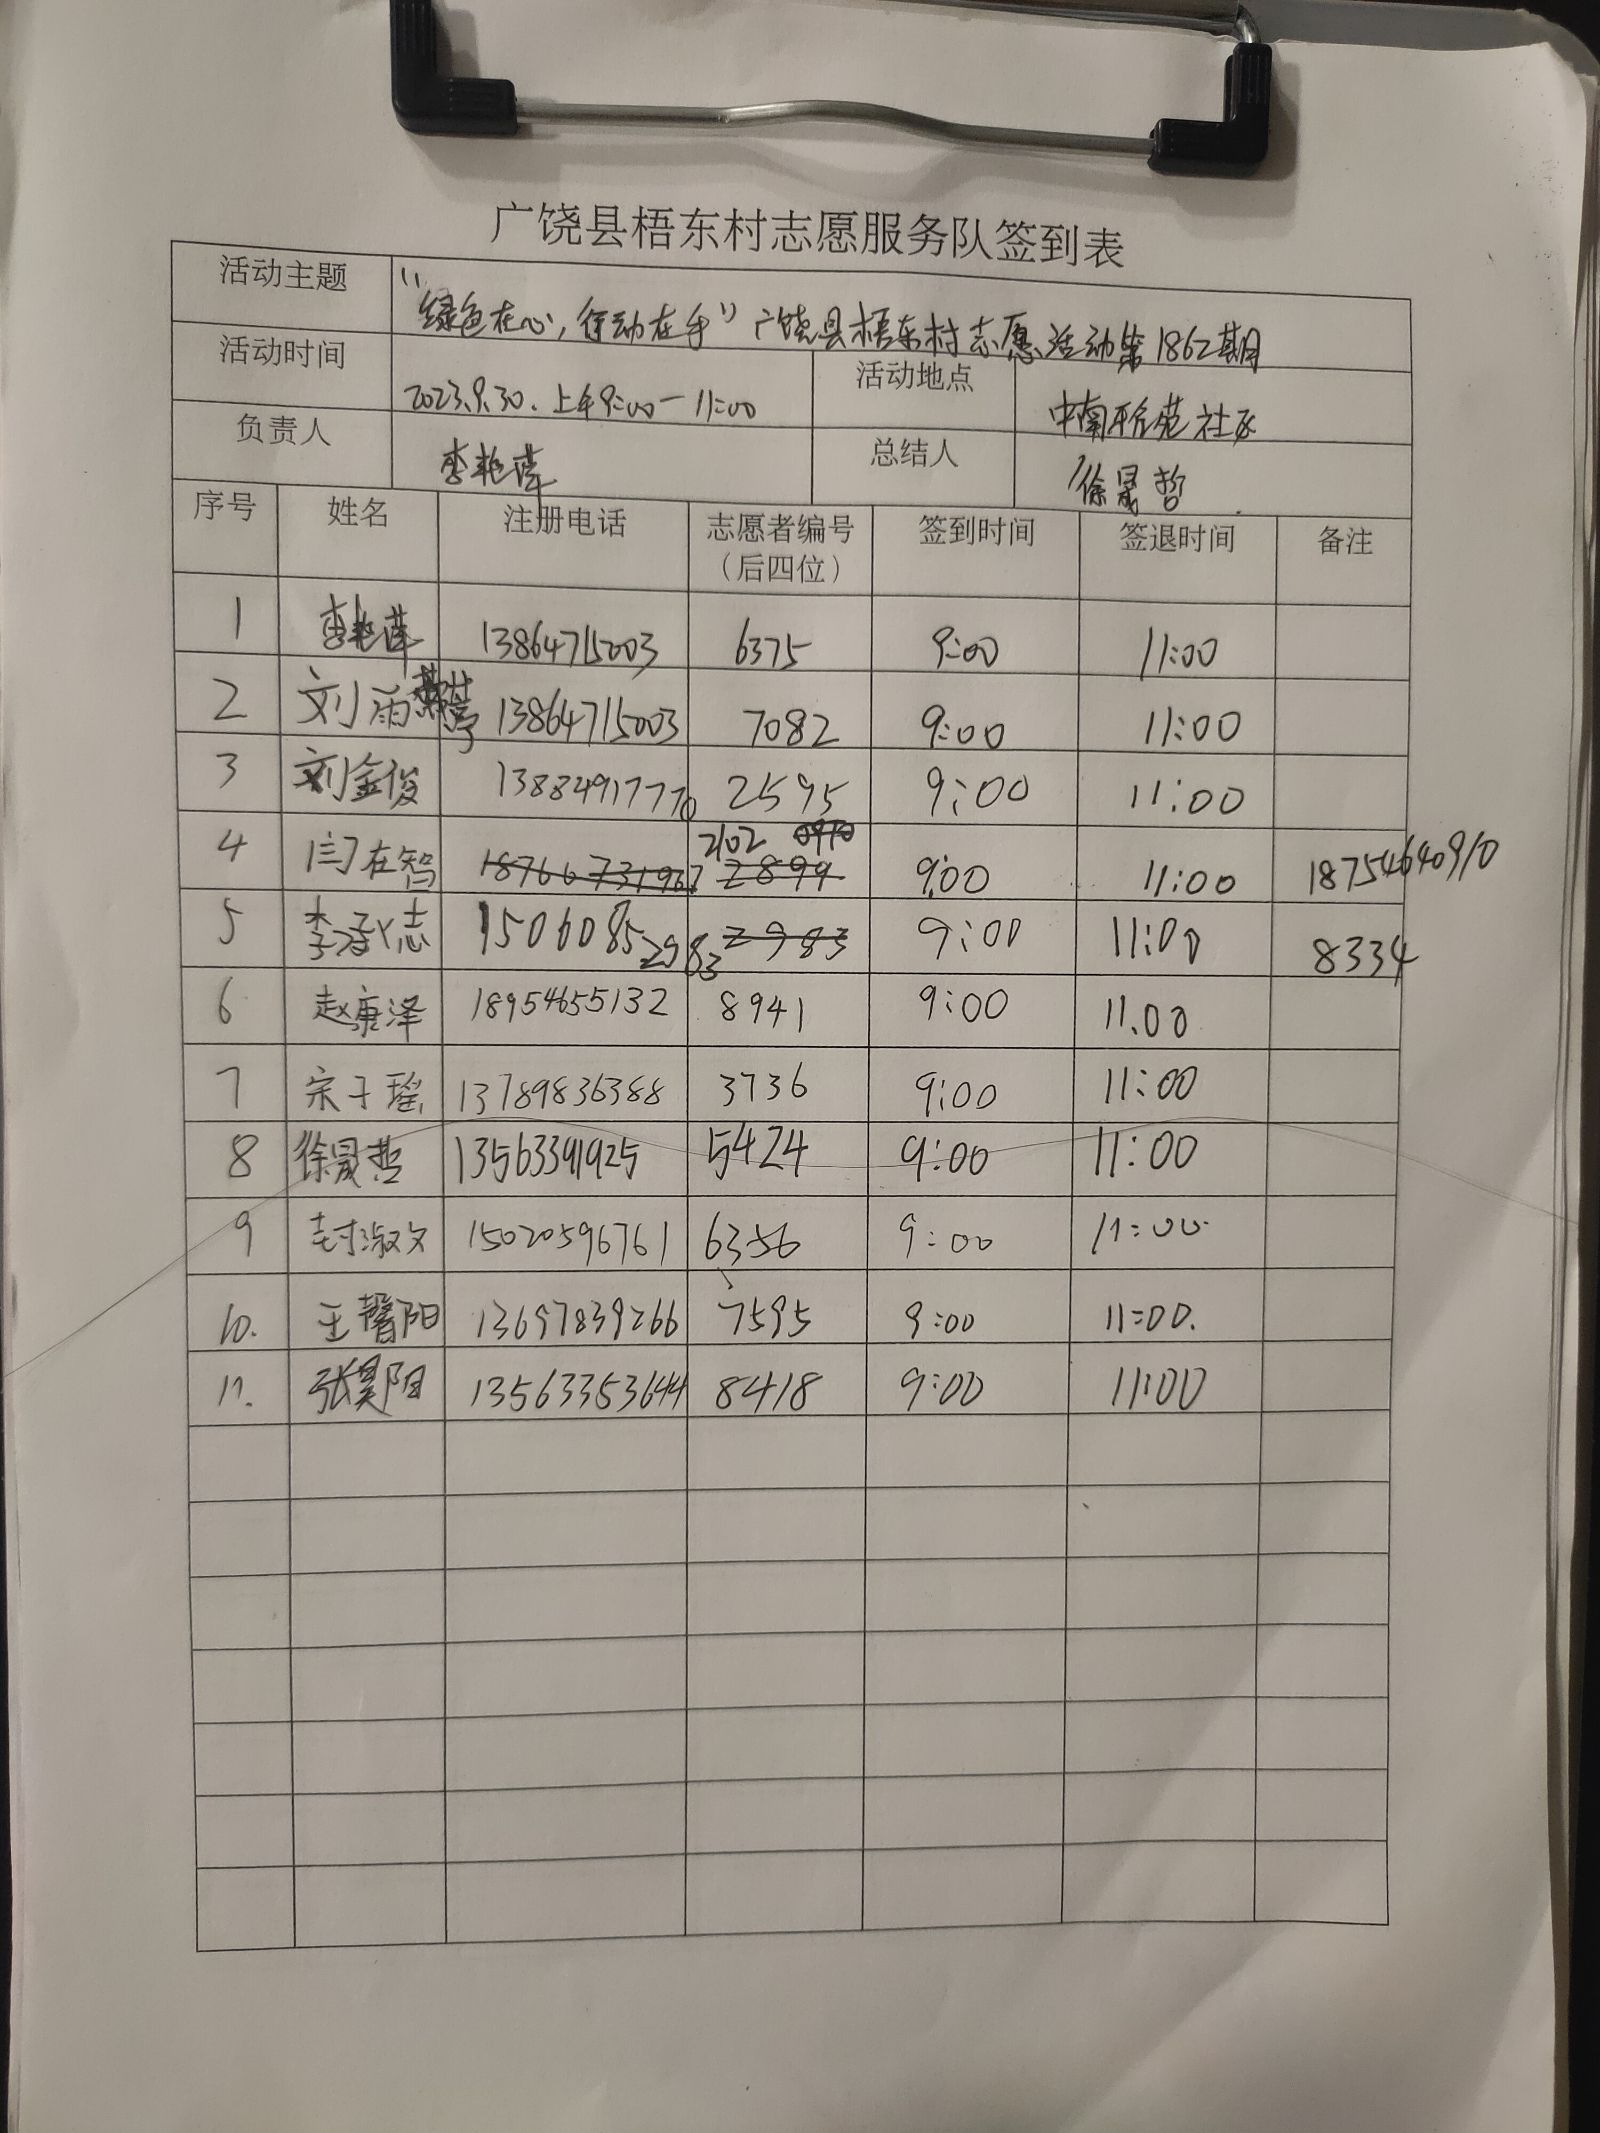 广饶县梧东村志愿服务队签到表
活动主题 "绿色在心,行动在手"广饶县梧东村志愿活动第1862期
活动时间 2023.9.30.上午9:00-11:00 活动地点 中南雅苑社区
负责人 李艳萍 总结人 徐晟哲
序号 姓名 注册电话 志愿者编号 签到时间 签退时间 备注
(后四位)
1 李艳萍 13864715003 6375 9:00 11:00
2 刘雨 13864715003 7082 9:00 11:00
3 刘金俊 13884917770 2595 9:00 11:00
2102 0910
4 闫在智 18766731967 2899 9:00 11:00 18754640910
5 李承志 15060852983 2983 9:00 11:00 8334
6 赵唐泽 18954655132 8941 9:00 11.00
7 宋子瑶 13789836388 3736 9:00 11:00
8 徐晟哲 13563391925 5424 9:00 11:00
9 封淑文 15020596761 6356 9:00 11:00
10. 王馨阳 13697839266 7595 9:00 11:00.
11. 张昊阳 13563353644 8418 9:00 11:00